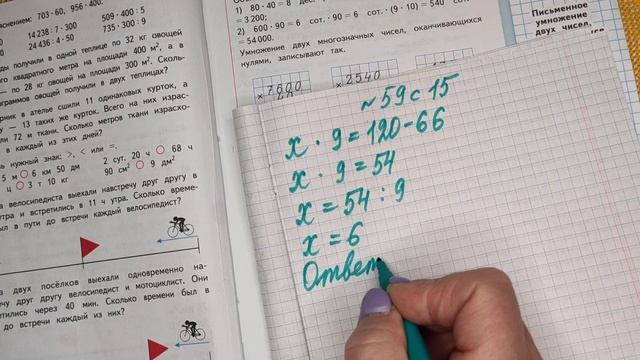 яснением: 703 · 60, 956 · 400.
14 238 : 7 · 300 509 · 400 : 5
24 436 : 4 · 50 735 · 300 : 9
получили в одной теплице по 32 кг овощей
квадратного метра на площади 400 м², а в
— по 28 кг овощей на площади 300 м². Сколь-
овощей получили в двух теплицах?
в ателье сшили 11 одинаковых курток, а
— 13 таких же курток. Всего на них израс-
72 м ткани. Сколько метров ткани израсхо-
в каждый из этих дней?
нужный знак: >, < или =.
5 м 6 км 50 дм 2 сут. 20 ч 68 ч
ч 3 т 10 кг 90 см² 9 дм²
велосипедиста выехали навстречу друг другу в
утра и встретились в 11 ч утра. Сколько време-
был в пути до встречи каждый велосипедист?
двух посёлков выехали одновременно на-
друг другу велосипедист и мотоциклист. Они
через 40 мин. Сколько времени был в
до встречи каждый из них?
1) 80 · 40 = 8
= 3 200;
2) 600 · 90 = 6 сот. · 90 = 6 сот. · (9 · 10) = 540 сот.
= 54 000.
Умножение двух многозначных чисел, оканчивающихся
нулями, записывают так.
× 7600
× 2540
Письменное
умножение
двух чисел,
~ 59 с 15
x · 9 = 120 - 66
x · 9 = 54
x = 54 : 9
x = 6
Ответ